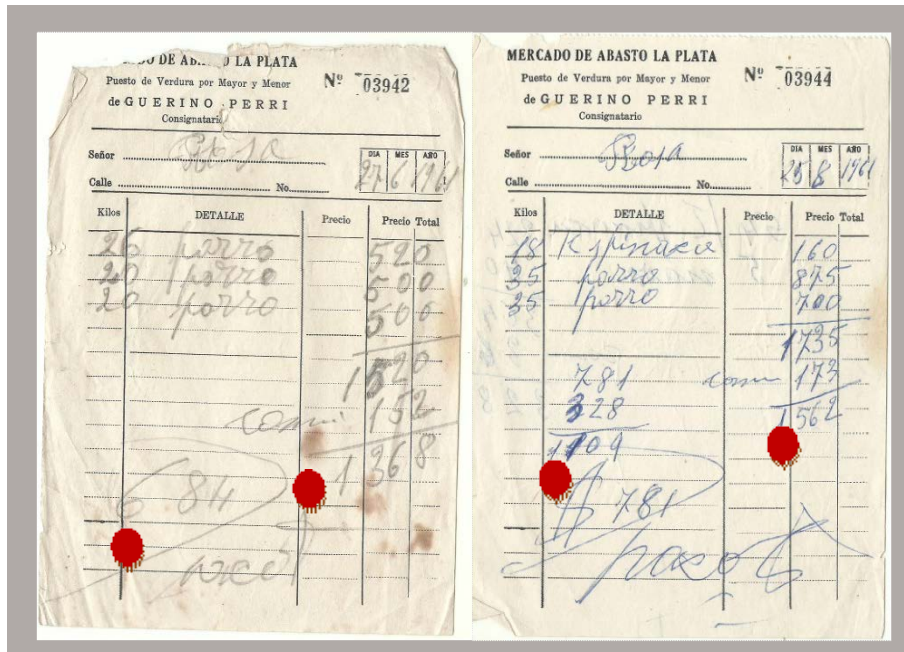 DE ABASTO LA PLATA
Puesto de Verdura por Mayor y Menor
de GUERINO PERRI
Consignatario
Nº 03942
Señor Rosa
DIA MES AÑO
27 6 1961
Calle No.
Kilos DETALLE Precio Precio Total
26 porro 520
20 porro 500
20 porro 500
1520
comi 152
1368
684
MERCADO DE ABASTO LA PLATA
Puesto de Verdura por Mayor y Menor
de GUERINO PERRI
Consignatario
Nº 03944
Señor Rosa
DIA MES AÑO
25 8 1961
Calle No.
Kilos DETALLE Precio Precio Total
18 Espinaca 160
35 porro 875
35 porro 700
1735
781 comi 173
328 1562
1109
$ 781